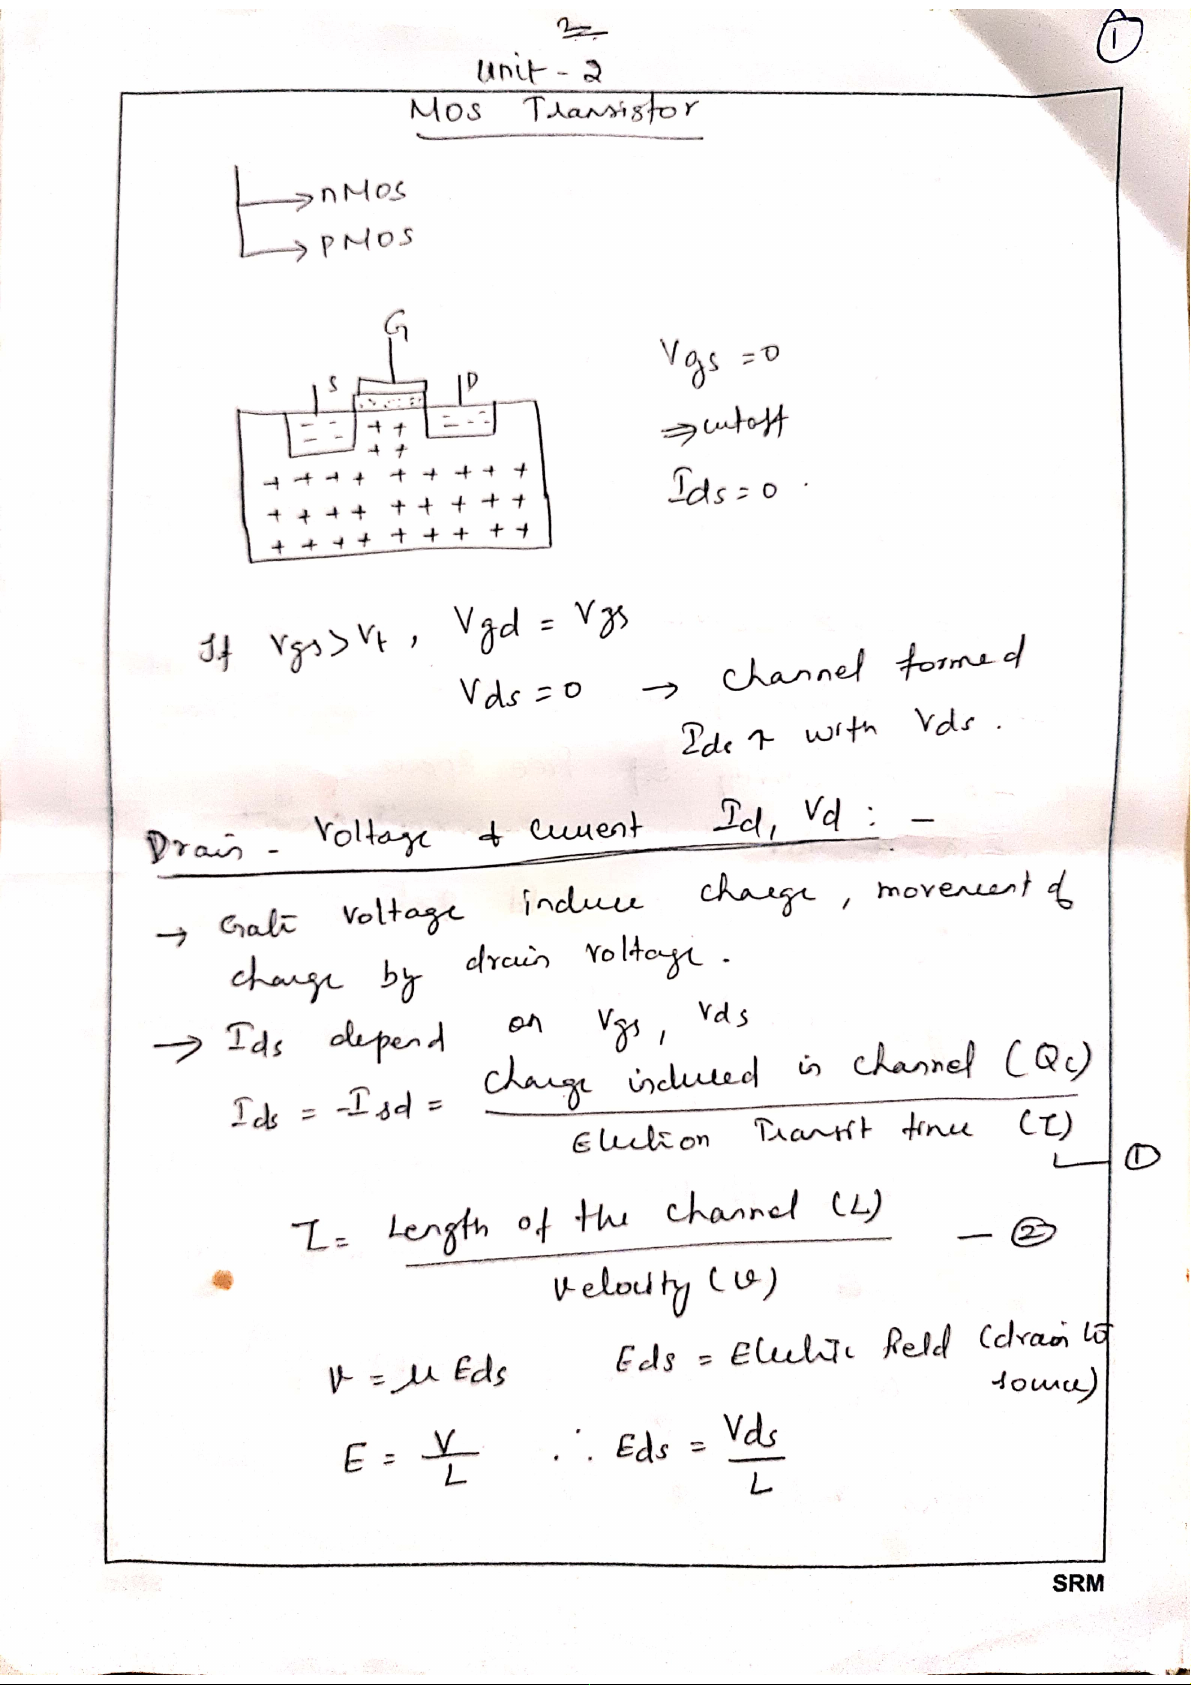 2
①
Unit - 2
MOS Transistor
→ nMOS
→ PMOS
G
S D
Vgs = 0
⇒ cutoff
Ids = 0 .
If Vgs > Vt , Vgd = Vgs
Vds = 0 → channel formed
Ids ↑ with Vds .
Drain - Voltage & current Id, Vd : -
→ Gate voltage induce charge , movement of
charge by drain voltage .
→ Ids depend on Vgs , Vds
Ids = -Isd = charge induced in channel (Qc)
Electron Transit time (τ)
①
τ = Length of the channel (L) — ②
Velocity (v)
v = μ Eds Eds = Electric field (drain to
source)
E = V/L ∴ Eds = Vds/L
SRM